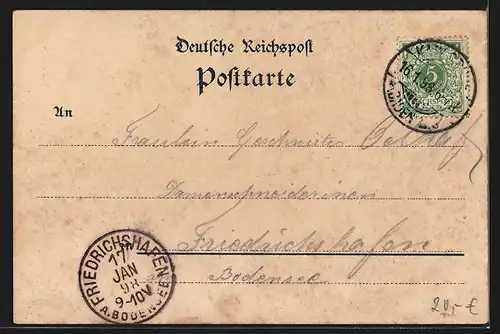 Deutsche Reichspost
Postkarte
An
Fräulein Geschwister
Damenschneiderinen
Friedrichshafen
Bodensee
FRIEDRICHSHAFEN
17
JAN
98
9-10V
A.BODENSEE
5
20,- €